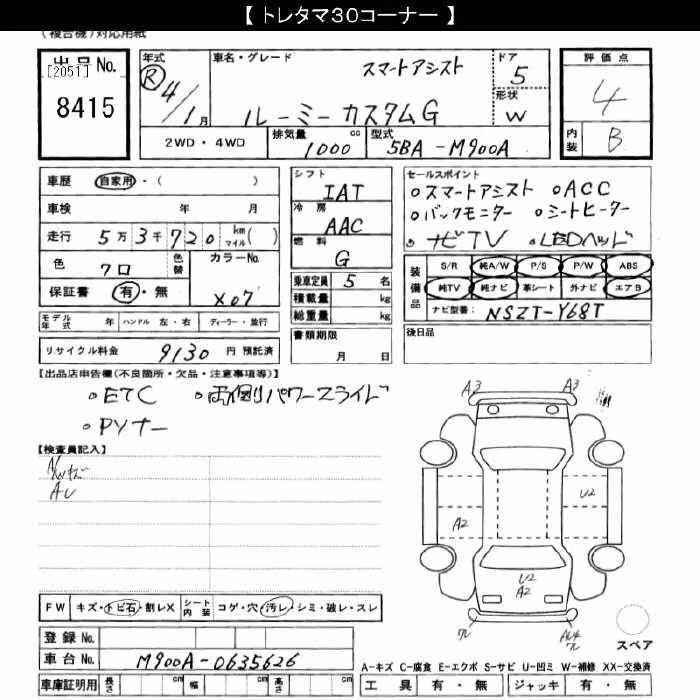 【 トレタマ30コーナー 】
(複合機)対応用紙
出品No. [2051] 8415
年式 R 4/1月
車名・グレード スマートアシスト
ルーミーカスタムG
ドア 5
形状 W
評価点 4
内装 B
2WD・4WD
排気量 1000 cc
型式 5BA-M900A
車歴 自家用・( )
車検 年 月
走行 5万3千720 km マイル( )
色 クロ 色替 カラーNo. X07
保証書 有・無
シフト IAT
冷房 AAC
燃料 G
乗車定員 5 名
積載量 kg
総重量 kg
セールスポイント
・スマートアシスト ・ACC
・バックモニター ・シートヒーター
・ナビTV ・LEDヘッド
装備品 S/R 純A/W P/S P/W ABS
純TV 純ナビ 革シート 外ナビ エアB
ナビ型番: NSZT-Y68T
モデル年式 年 ハンドル 左・右 ディーラー・並行
リサイクル料金 9130 円 預託済
書類期限 月 日
後日品
【出品店申告欄(不良箇所・欠品・注意事項等)】
・ETC ・両側パワースライド
・PVナー
【検査員記入】
AU
A3 A3
U2
A2
U2
A2
FW キズ・トビ石・割レX シート内装 コゲ・穴・汚レ・シミ・破レ・スレ
登録No.
車台No. M900A-0635626
スペア
A-キズ C-腐食 E-エクボ S-サビ U-凹ミ W-補修 XX-交換済
車庫証明用 長さ cm 幅 cm 高さ cm
工具 有・無 ジャッキ 有・無